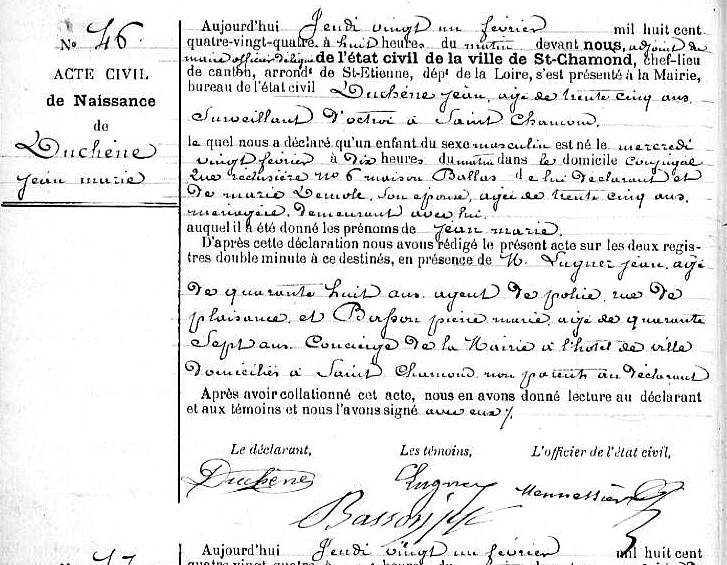 N° 46
ACTE CIVIL
de Naissance
de
Duchêne
jean marie
Aujourd'hui Jeudi vingt un février mil huit cent
quatre-vingt-quatre, à huit heures du matin devant nous, adjoint du
maire officier délégué de l'état civil de la ville de St-Chamond, chef-lieu
de canton, arrondt de St-Etienne, dépt de la Loire, s'est présenté à la Mairie,
bureau de l'état civil Duchêne jean, agé de trente cinq ans
Surveillant d'octroi à Saint Chamond.
le quel nous a déclaré qu'un enfant du sexe masculin est né le mercredi
vingt février à Dix heures du matin dans le domicile conjugal
rue reclusière no 6 maison Ballas de lui déclarant et
de marie Lemole, son épouse, agée de trente cinq ans,
menagère, demeurant avec lui,
auquel il a été donné les prénoms de jean marie.
D'après cette déclaration nous avons rédigé le présent acte sur les deux regis-
tres double minute à ce destinés, en présence de M. Lugner jean, agé
de quarante huit ans, agent de police, rue de
plaisance, et Basson pierre marie, agé de quarante
Sept ans, Concierge de la Mairie à l'hotel de ville
domiciliés à Saint Chamond, non parents au déclarant
Après avoir collationné cet acte, nous en avons donné lecture au déclarant
et aux témoins et nous l'avons signé avec eux /.
Le déclarant,
Les témoins,
L'officier de l'état civil,
Duchêne
Lugner
Mennessier
Basson
47
Aujourd'hui Jeudi vingt un février mil huit cent